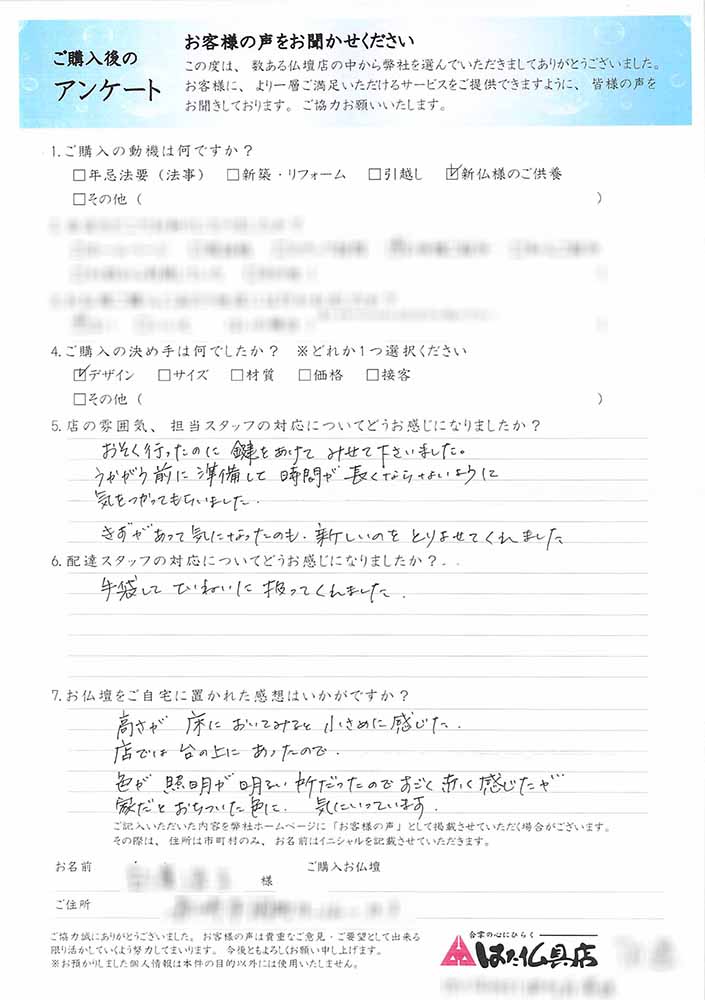 ご購入後の
アンケート
お客様の声をお聞かせください
この度は、数ある仏壇店の中から弊社を選んでいただきましてありがとうございました。
お客様に、より一層ご満足いただけるサービスをご提供できますように、皆様の声を
お聞きしております。ご協力お願いいたします。
1.ご購入の動機は何ですか？
□年忌法要（法事） □新築・リフォーム □引越し ☑新仏様のご供養
□その他（ ）
4.ご購入の決め手は何でしたか？ ※どれか1つ選択ください
☑デザイン □サイズ □材質 □価格 □接客
□その他（ ）
5.店の雰囲気、担当スタッフの対応についてどうお感じになりましたか？
おそく行ったのに 鍵をあけて みせて下さいました。
うかがう前に準備して 時間が 長くならないように
気をつかってもらいました.
きずがあって気になったのも、新しいのをとりよせてくれました
6.配達スタッフの対応についてどうお感じになりましたか？
手袋して ていねいに 扱ってくれました.
7.お仏壇をご自宅に置かれた感想はいかがですか？
高さが 床に おいてみると 小さめに感じた.
店では 台の上に あったので.
色が 照明が明るい所だったのですごく赤く感じたが
家だとおちついた色に. 気にいっています.
ご記入いただいた内容を弊社ホームページに「お客様の声」として掲載させていただく場合がございます。
その際は、住所は市町村のみ、お名前はイニシャルを記載させていただきます。
お名前 様 ご購入お仏壇
ご住所
ご協力誠にありがとうございました。お客様の声は貴重なご意見・ご要望として出来る
限り活かしていくよう努力してまいります。今後ともよろしくお願い申し上げます。
※お預かりしました個人情報は本件の目的以外には使用いたしません。
合掌の心にひらく
はた仏具店